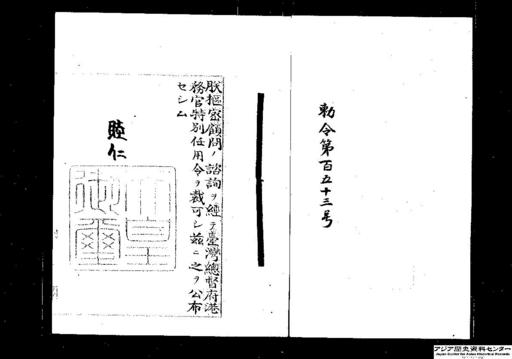 勅令第百五十三号
朕樞密顧問ノ諮詢ヲ經テ臺灣總督府港
務官特別任用令ヲ裁可シ茲ニ之ヲ公布
セシム
睦仁
天皇
御璽
アジア歴史資料センター
Japan Center for Asian Historical Records